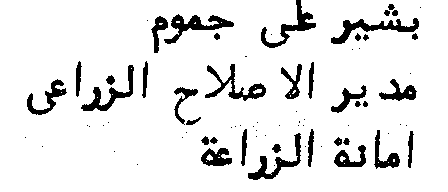 بشير على جموم
مدير الاصلاح الزراعى
امانة الزراعة